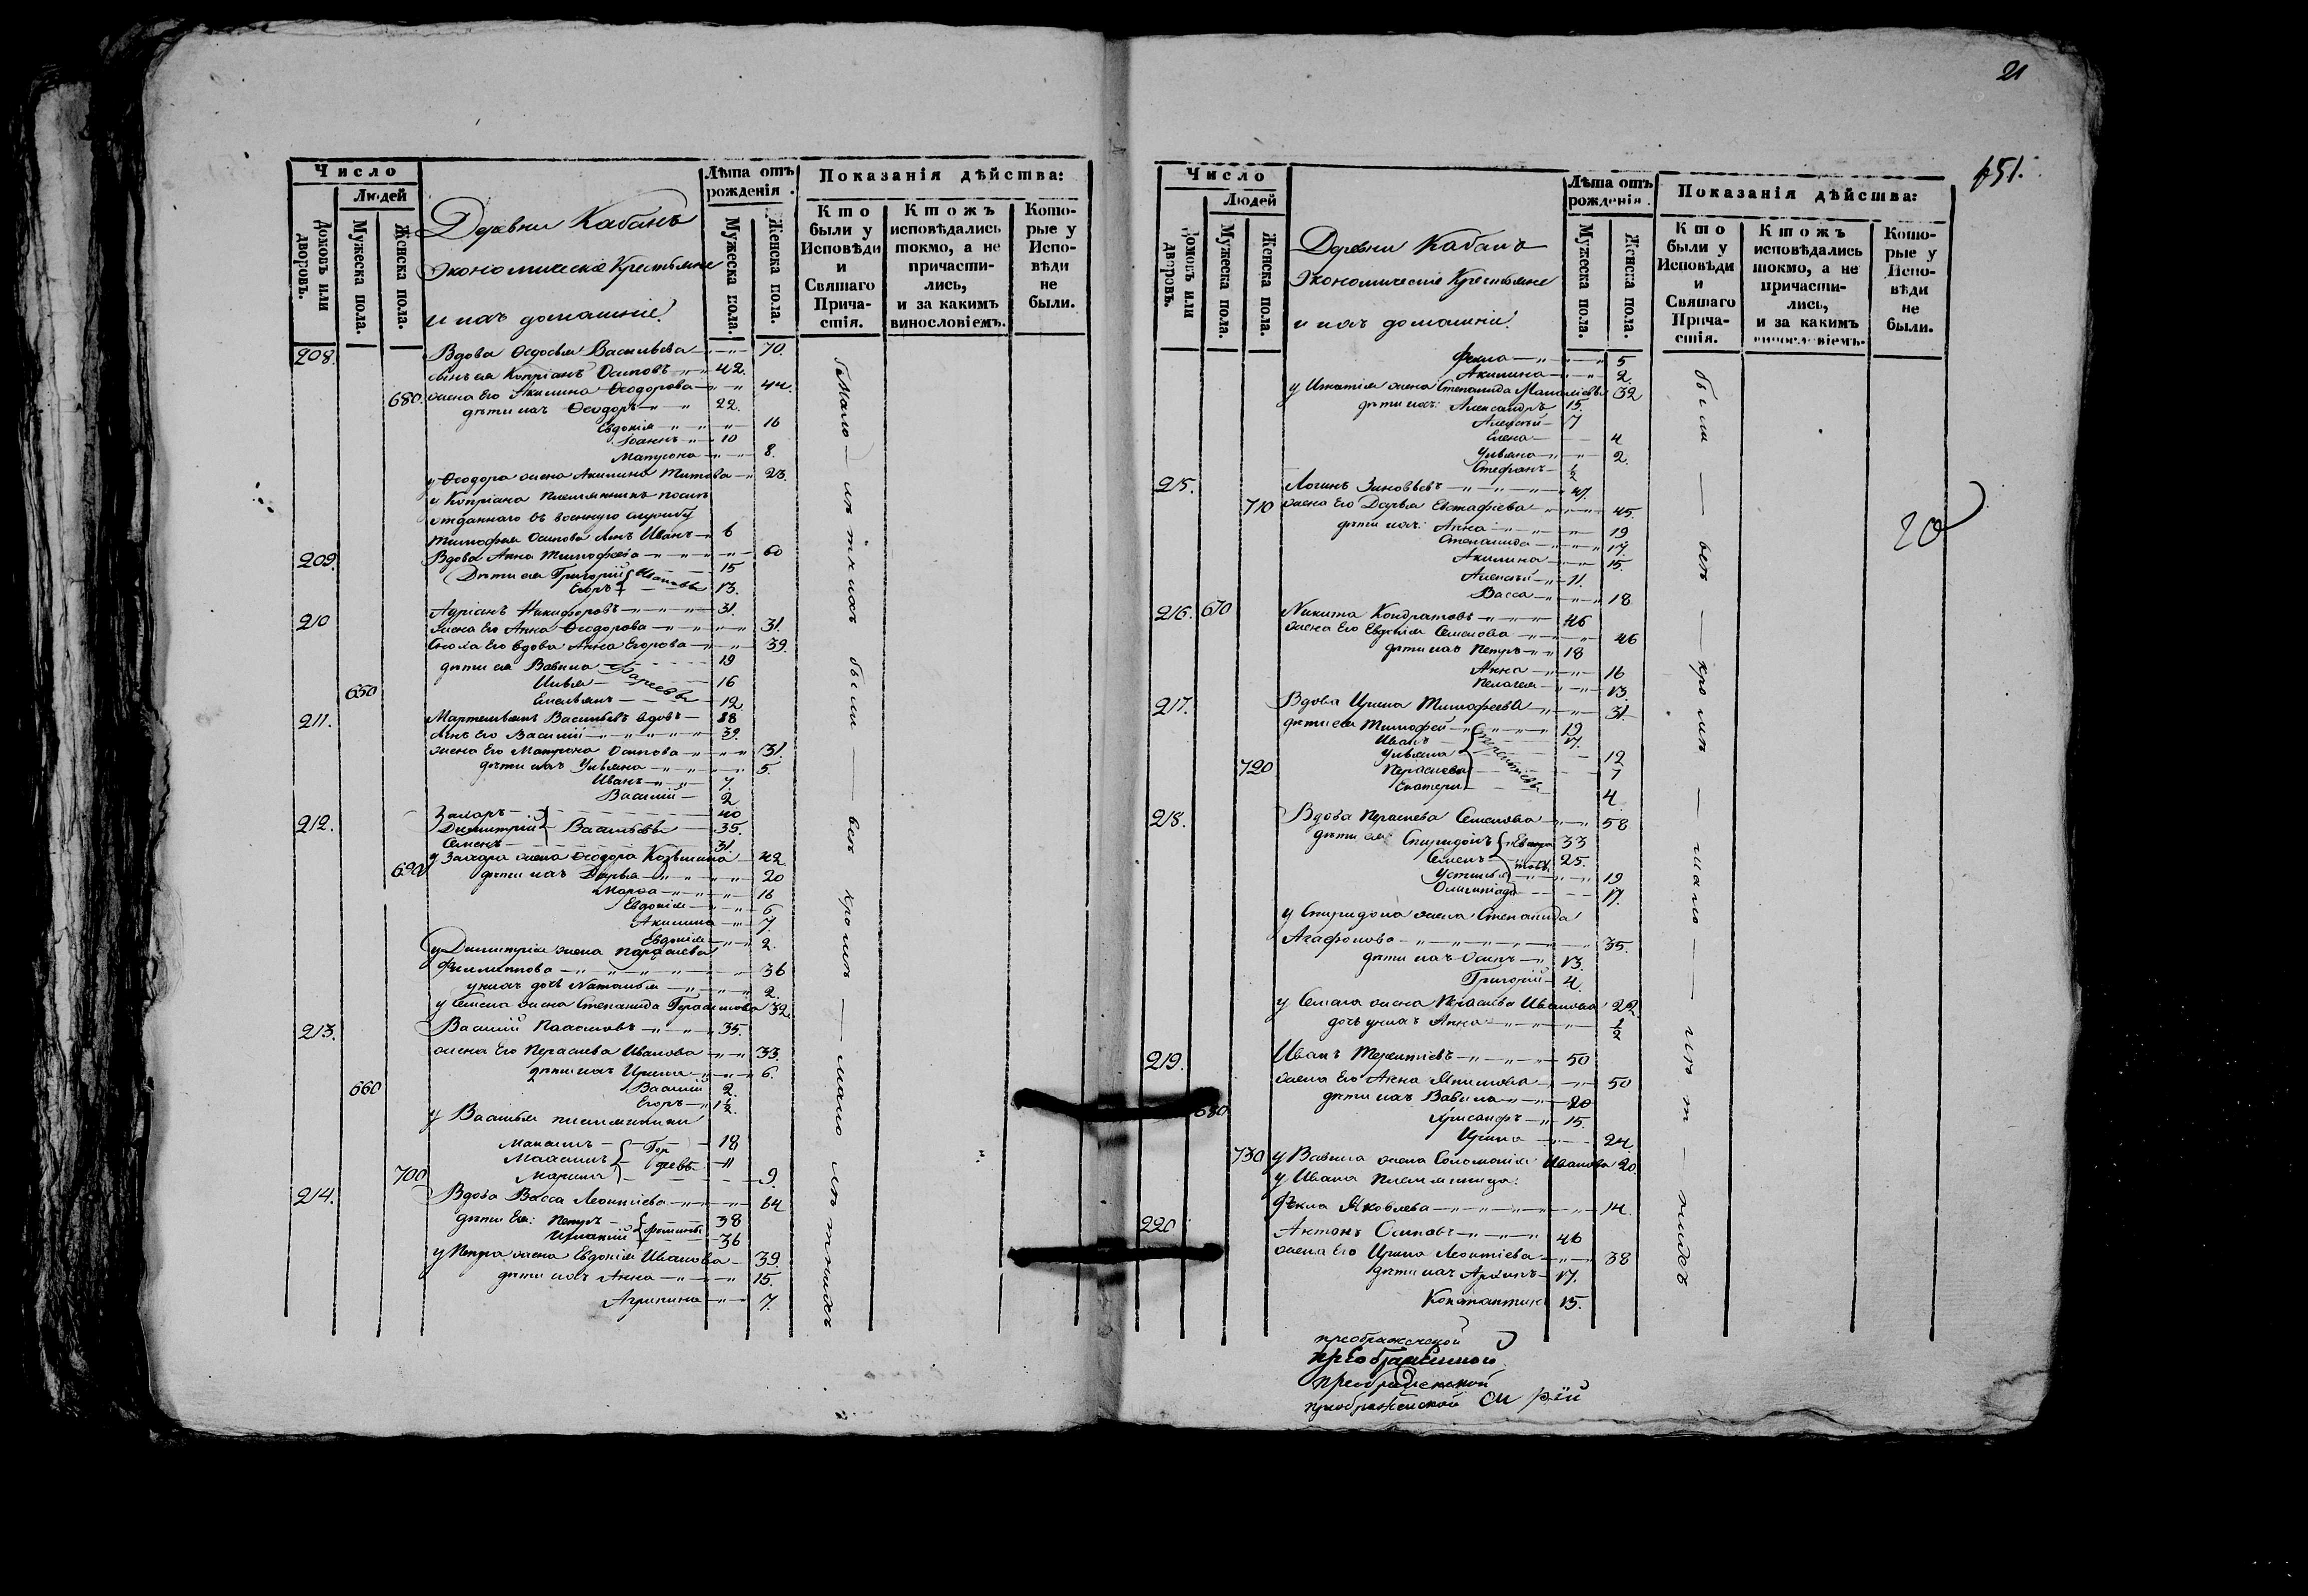 Число
Людей
Домовъ или дворовъ.
Мужеска пола.
Женска пола.
Деревни Кабанъ
Экономическіе Крестьяне
и ихъ домашніе.
Лѣта отъ рожденія.
Мужеска пола.
Женска пола.
Показанія дѣйства:
Кто были у Исповѣди и Святаго Прича-стія.
Ктожъ исповѣдались токмо, а не причасти-лись, и за какимъ винословіемъ.
Кото-рые у Испо-вѣди не были.
208. Вдова Ѳедосья Васильева 70.
сынъ ея Копріанъ Осиповъ 42.
680. жена Его Акилина Ѳеодорова 44.
дѣти ихъ Ѳеодоръ 22.
Евдокія 16
Іоаннъ 10
Матрона 8.
у Ѳеодора жена Акилина Титова 23.
у Копріана племянникъ послѣ
отданнаго въ военную службу
Тимофея Осипова сынъ Иванъ 6
209. Вдова Анна Тимофеева 60
Дѣти ея Григорій 15
Егоръ 13.
210 Адріанъ Никифоровъ 31.
жена Его Анна Ѳеодорова 31.
Сноха Его вдова Анна Егорова 39.
дѣти ея Вавила 19
Илья 16
650 Емельянъ 12
211. Мартемьянъ Васильевъ вдовъ 88
сынъ Его Василій 39.
жена Его Матрона Осипова 31.
дѣти ихъ Ульяна 5.
Иванъ 7
Василій 2
212. Захаръ 40
Димитрій Васильевы 35.
Семенъ 31.
у Захара жена Ѳеодора Козьмина 42.
690 дѣти ихъ Дарья 20
Марѳа 16
Евдокія 6
Акилина 7.
Евдокія 2.
у Димитрія жена Параскева
Филиппова 36
у нихъ дочь Наталья 2.
у Семена жена Степанида Герасимова 32.
213. Василій 35.
жена Его Параскева Иванова 33.
дѣти ихъ Ирина 6.
660 Василій 2.
Егоръ 1 1/2.
у Василья племянники
18
11
700 Марина 9.
214. Вдова Васса Леонтіева 64
дѣти Ея: Петръ 38
Игнатій 36
у Петра жена Евдокія Иванова 39.
дѣти ихъ Анна 15.
Агрипина 7.
были — всѣ кромѣ — мало лѣтнихъ
21
651.
Число
Людей
Домовъ или дворовъ.
Мужеска пола.
Женска пола.
Деревни Кабанъ
Экономическіе Крестьяне
и ихъ домашніе.
Лѣта отъ рожденія.
Мужеска пола.
Женска пола.
Показанія дѣйства:
Кто были у Исповѣди и Святаго Прича-стія.
Ктожъ исповѣдались токмо, а не причасти-лись, и за какимъ винословіемъ.
Кото-рые у Испо-вѣди не были.
Фекла 5
Акилина 2.
у Игнатія жена Степанида 32
дѣти ихъ: Александръ 15.
Алексѣй 7
Елена 4
Ульяна 2.
Стефанъ 1/2
215. Логинъ Зиновьевъ 47.
710 жена Его Дарья Евстафіева 45.
дѣти ихъ: Анна 19
Степанида 17.
Акилина 15.
Алексѣй 11.
Васса 18
216. 670 Никита Кондратовъ 46
жена Его Евдокія Семенова 46
дѣти ихъ Петръ 18
Анна 16
Пелагея 13.
217. Вдова Ирина Тимофеева 31.
дѣти ея Тимофей 19
Иванъ 17.
Ульяна 12
720 Параскева 7
Екатери 4
218. Вдова Параскева Семенова 58
дѣти ея: Спиридонъ 33
Семенъ 25.
Устинья 19
Олимпіада 17.
у Спиридона жена Степанида
Агафонова 35.
дѣти ихъ Осипъ 13.
Григорій 4.
у Семена жена Параскева Иванова 22.
дочь у нихъ Анна 1/2
219. Иванъ Терентіевъ 50
жена Его Анна 50
дѣти ихъ Вавила 20
680 Хрисанфъ 15.
Ирина 24.
730 у Вавила жена Соломонія Иванова 20.
у Ивана племянница:
Фекла Яковлева 14.
220 Антонъ Осиповъ 46
жена Его Ирина Леонтіева 38
дѣти ихъ Архипъ 17.
Константинъ 15.
были — всѣ — кромѣ — мало — лѣт — нихъ
20
преображенской
преображенской
преображенской
преображенской